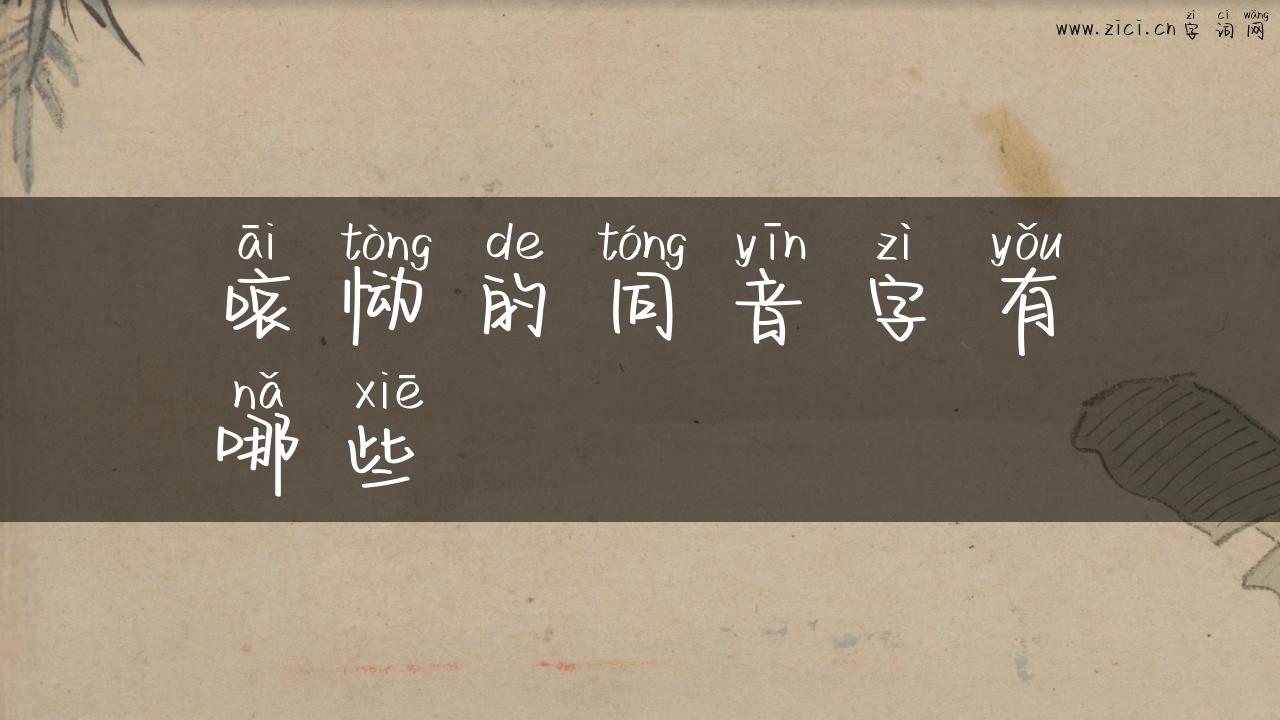 zì cí wǎng
www.zici.cn 字词网
āi tòng de tóng yīn zì yǒu
哀恸的同音字有
nǎ xiē
哪些